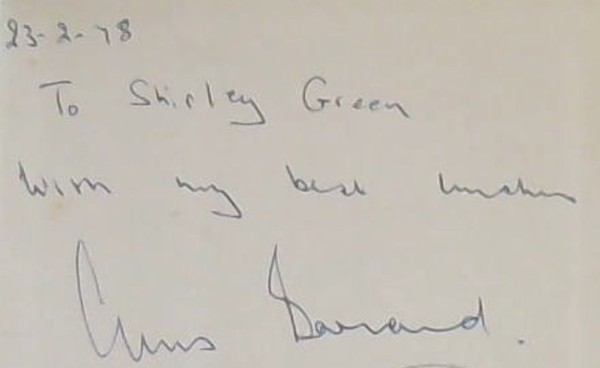 23-2-78
To Shirley Green
With my best wishes
Chris